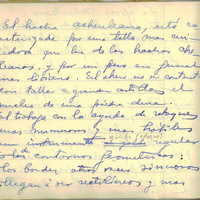 El hacha acheuleana, esta ca
racterizada por una talla mas cui
dadosa que las de las hachas che
lenses, y por un peso en general
mas liviano. El ahora no se contenta
con tallar a grandes astillas el
nucleo de una piedra dura.
El trabajo con la ayuda de retoques
mas numerosos y mas habiles
un instrumento de regular
contornos geometricos:
los bordes, otras veces sinuosos
llegan a ser rectilineos y mas